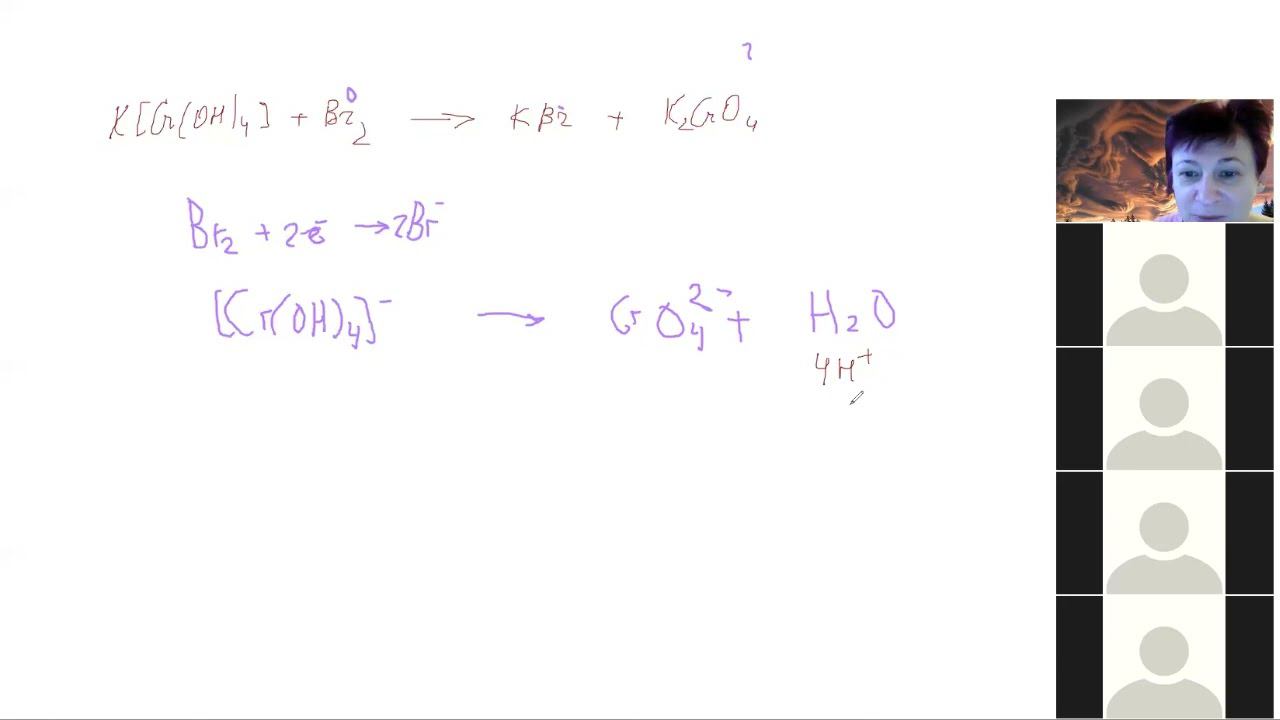 ?
K[Cr(OH)4] + Br2⁰ → KBr + K2CrO4
Br2 + 2ē → 2Br⁻
[Cr(OH)4]⁻ → CrO4²⁻ + H2O
4H⁺